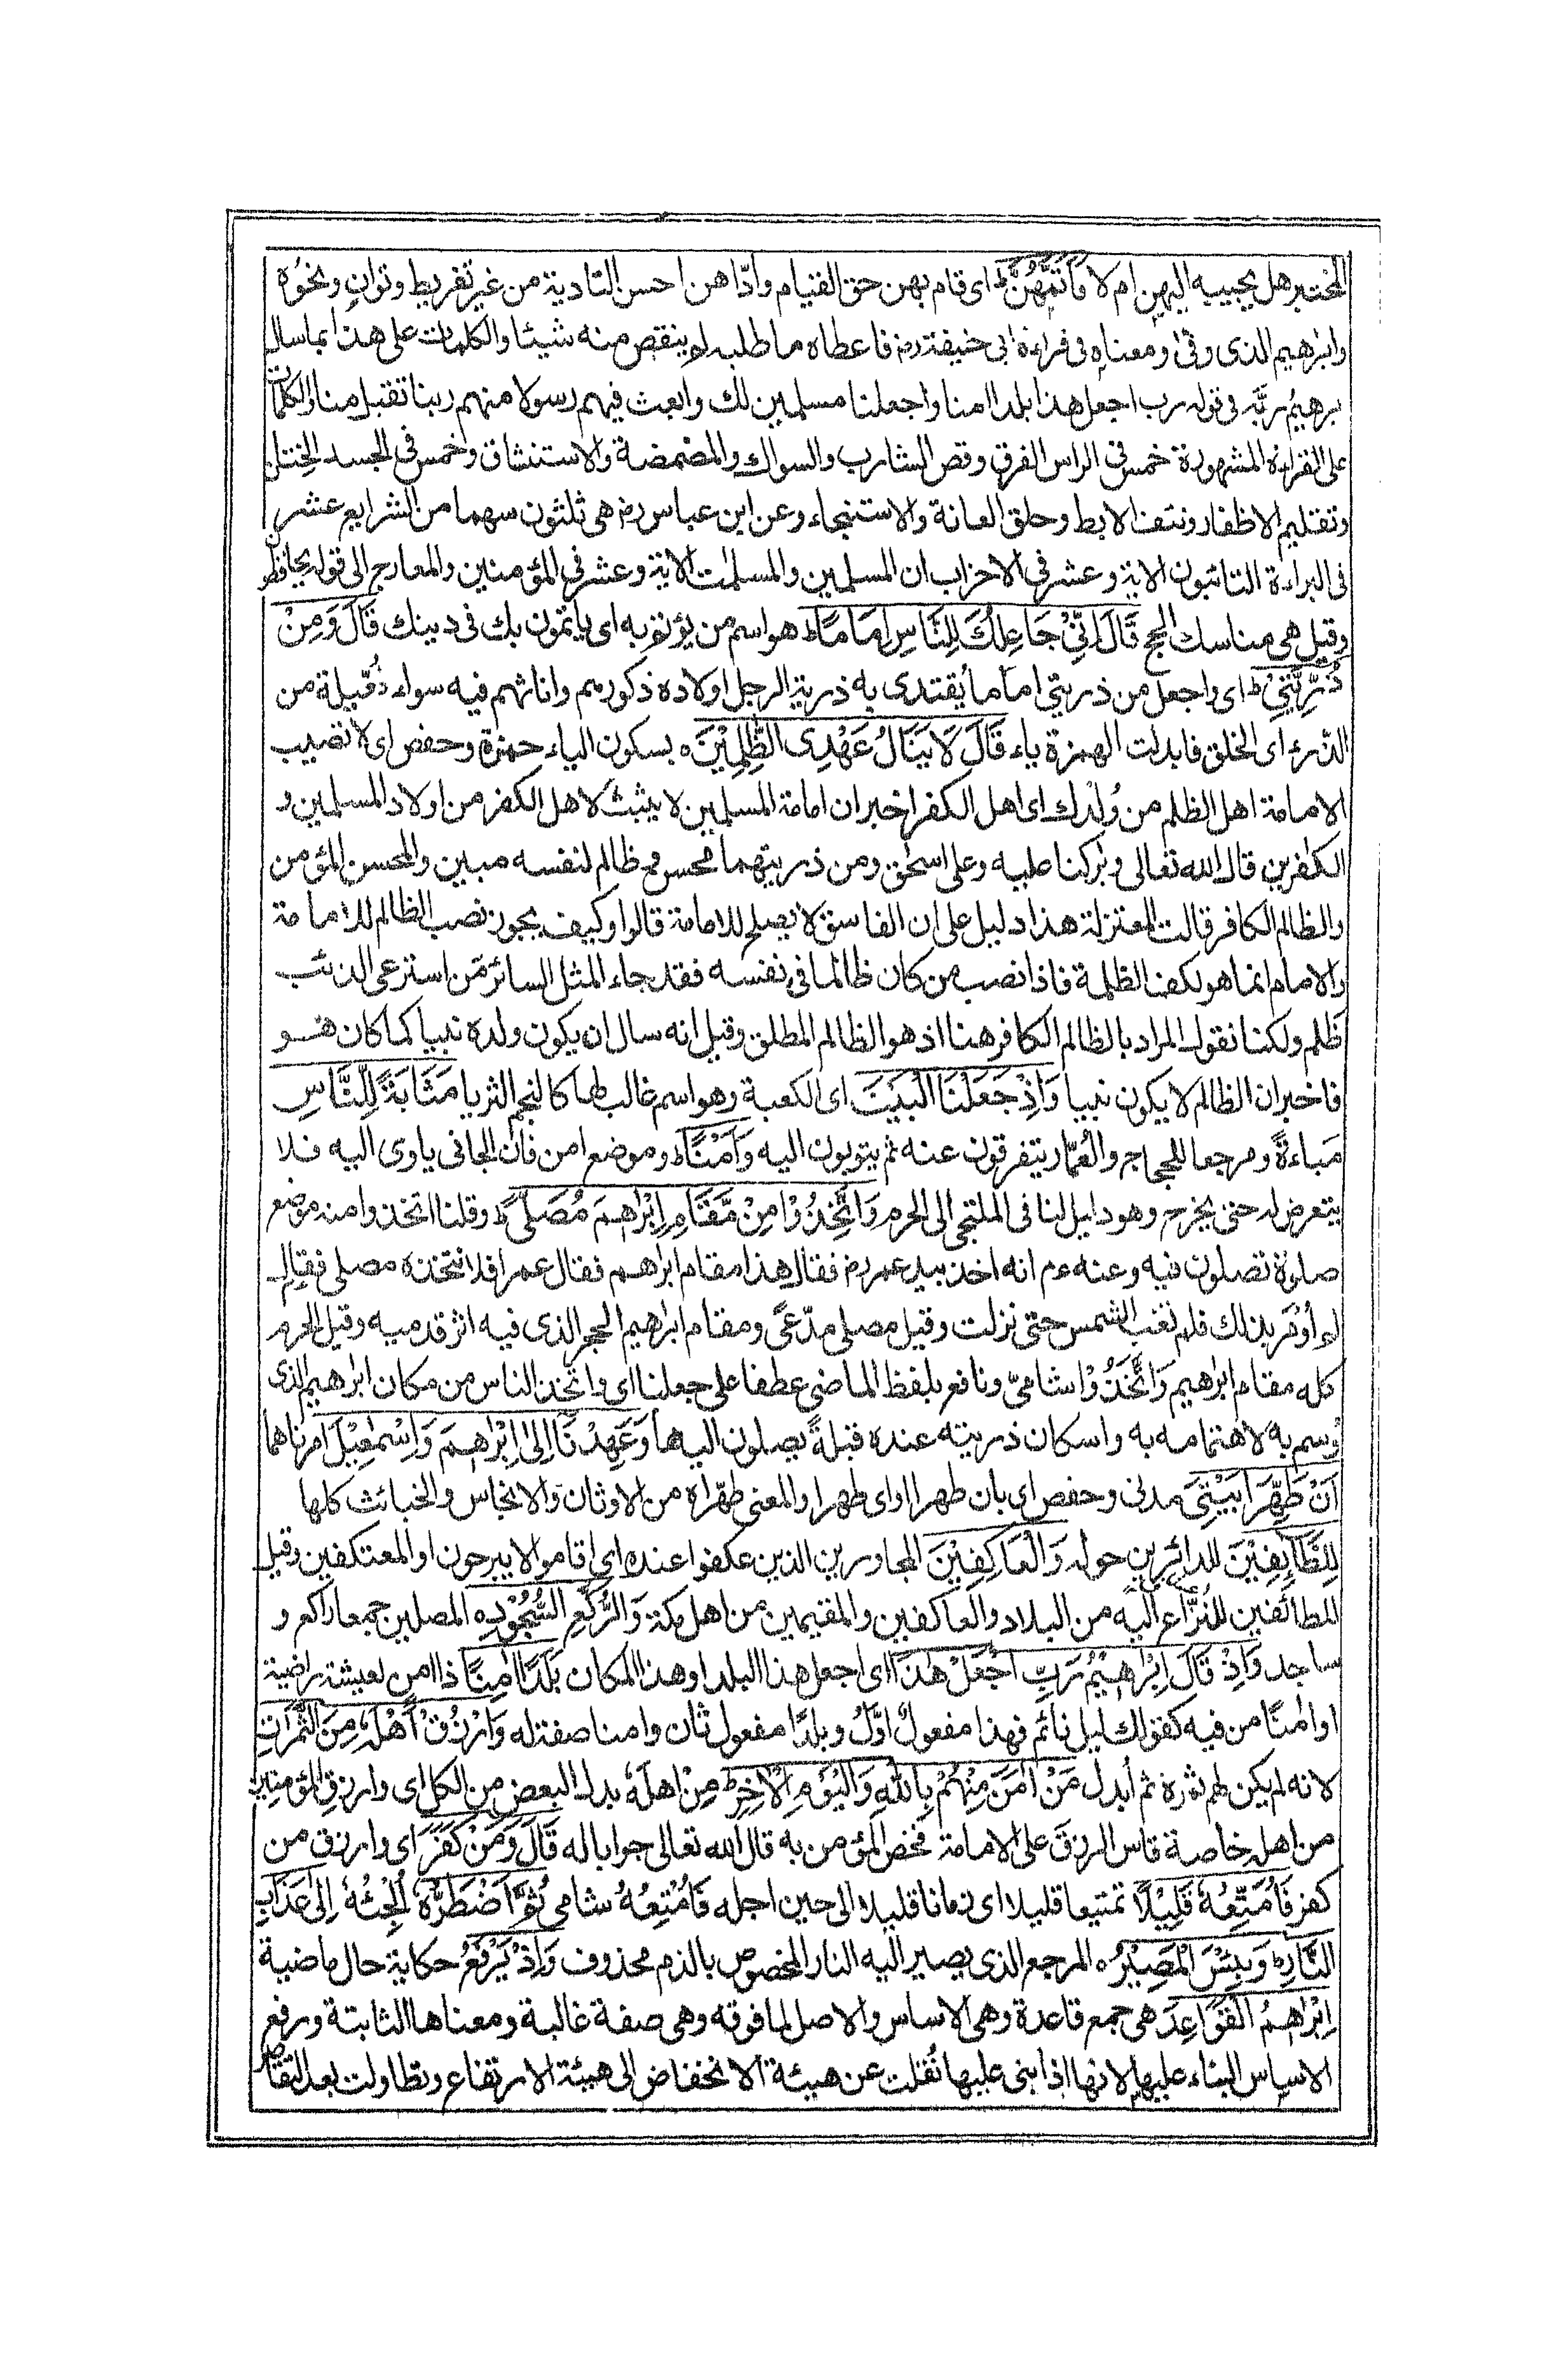 المختبر هل يجيبه اليهن ام لا فَاَتَمَّهُنَّ ط اى قام بهن حق القيام وادّاهن احسن التادية من غير تفريط وتوانٍ ونحوُه
وابرٰهيم الذى وفّى ومعناه فى قراءة ابى حنيفة رض فاعطاه ما طلبه لم ينقص منه شيئا والكلمات على هذا ما سال
برهيمُ ربَّه فى قوله رب اجعل هذا بلدا امنا واجعلنا مسلمين لك وابعث فيهم رسولا منهم ربنا تقبل منا والكلمات
على القراءة المشهورة خمس فى الراس الفرق وقص الشارب والسواك والمضمضة والاستنشاق وخمس فى الجسد الختان
وتقليم الاظفار ونتف الابط وحلق العانة والاستنجاء وعن ابن عباس رض هى ثلثون سهما من الشرايع عشر
فى البراءة التائبون الاية وعشر فى الاحزاب ان المسلمين والمسلمٰت الاية وعشر فى المؤمنين والمعارج الى قوله يحافظون
وقيل هى مناسك الحج قَالَ اِنِّىْ جَاعِلُكَ لِلنَّاسِ اِمَامًا ط هو اسم من يؤتم به اى ياتمون بك فى دينك قَالَ وَمِنْ
ذُرِّيَّتِىْ ط اى واجعل من ذريتى اماما يُقتدى به ذرية الرجل اولاده ذكورهم واناثهم فيه سواء فُعّيلة من
الذرء اى الخلق فابدلت الهمزة ياء قَالَ لَا يَنَالُ عَهْدِى الظّٰلِمِيْنَ ه بسكون الياء حمزة وحفص اى لا تصيب
الامامة اهل الظلم من وُلْدك اى اهل الكفر اخبر ان امامة المسلمين لا يثبت لاهل الكفر من اولاد المسلمين و
الكٰفرين قال الله تعالى وبٰركنا عليه وعلى اسحٰق ومن ذريتهما محسن وظالم لنفسه مبين والمحسن المؤمن
والظالم الكافر قالت المعتزلة هذا دليل على ان الفاسق لا يصلح للامامة قالوا وكيف يجوز نصب الظالم للامامة
والامام انما هو لكف الظلمة فاذا نصب من كان ظالما فى نفسه فقد جاء المثل السائر مَن استرعى الذئب
ظلم ولكنا نقول المراد بالظالم الكافر هنا اذ هو الظالم المطلق وقيل انه سال ان يكون ولده نبيا كما كان هو
فاخبر ان الظالم لا يكون نبيا وَاِذْ جَعَلْنَا الْبَيْتَ اى الكعبة وهو اسم غالب لها كالنجم للثريا مَثَابَةً لِّلنَّاسِ
مَباءةً ومرجعا للحجاج والعُمّار يتفرقون عنه ثم يثوبون اليه وَاَمْنًا ط وموضع امن فان الجانى ياوى اليه فلا
يتعرض له حتى يخرج وهو دليل لنا فى الملتجى الى الحرم وَاتَّخِذُوْا مِنْ مَّقَامِ اِبْرٰهٖمَ مُصَلًّى ط وقلنا اتخذوا منه موضع
صلوة تصلون فيه وعنه عم انه اخذ بيد عمر رض فقال هذا مقام ابراهيم فقال عمر افلا نتخذه مصلى فقال
لم أُومَر بذلك فلم تغب الشمس حتى نزلت وقيل مصلى مدّعًى ومقام ابرٰهيم الحجر الذى فيه اثر قدميه وقيل الحرم
كله مقام ابرٰهيم وَاتَّخَذُوْا شامىّ ونافع بلفظ الماضى عطفا على جعلنا اى واتخذ الناس من مكان ابرٰهيم الذى
وُسم به لاهتمامه به واسكان ذريته عنده قبلةً يصلون اليها وَعَهِدْنَا اِلٰى اِبْرٰهٖمَ وَاِسْمٰعِيْلَ امرناهما
اَنْ طَهِّرَا بَيْتِىَ مدنى وحفص اى بان طهرا او اى طهرا والمعنى طهّراه من الاوثان والانجاس والخبائث كلها
لِلطَّآئِفِيْنَ للدائرين حوله وَالْعَاكِفِيْنَ المجاورين الذين عكفوا عنده اى اقاموا لا يبرحون او المعتكفين وقيل
للطائفين للنُزَّاع اليه من البلاد والعاكفين والمقيمين من اهل مكة وَالرُّكَّعِ السُّجُوْدِ ه المصلين جمعا راكع و
ساجد وَاِذْ قَالَ اِبْرٰهٖمُ رَبِّ اجْعَلْ هٰذَا اى اجعل هذا البلد او هذا المكان بَلَدًا اٰمِنًا ذا امن كعيشة راضية
او اٰمنًا من فيه كقولك ليل نائم فهذا مفعولٌ اوّلُ وبلدًا مفعول ثان وامنا صفة له وَارْزُقْ اَهْلَهٗ مِنَ الثَّمَرٰتِ
لانه لم يكن لهم ثمرة ثم أبدل مَنْ اٰمَنَ مِنْهُمْ بِاللّٰهِ وَالْيَوْمِ الْاٰخِرِ ط مِنْ اهله بدل البعض من الكل اى وارزق المؤمنين
من اهله خاصة قاس الرزقَ على الامامة فخص المؤمن به قال الله تعالى جوابا له قَالَ وَمَنْ كَفَرَ اى وارزق من
كفر فَاُمَتِّعُهٗ قَلِيْلًا تمتيعا قليلا اى زمانا قليلا الى حين اجله فَاُمْتِعُهُ شامى ثُمَّ اَضْطَرُّهٗ اُلجِئهٗ اِلٰى عَذَابِ
النَّارِ ط وَبِئْسَ الْمَصِيْرُ ه المرجع الذى يصير اليه النار المخصوص بالذم محذوف وَاِذْ يَرْفَعُ حكاية حال ماضية
اِبْرٰهٖمُ الْقَوَاعِدَ هى جمع قاعدة وهى الاساس والاصل لما فوقه وهى صفة غالبة ومعناها الثابتة ورفع
الاساس البناء عليها لانها اذا بنى عليها نُقلت عن هيئة الانخفاض الى هيئة الارتفاع وتطاولت بعد التقاصر